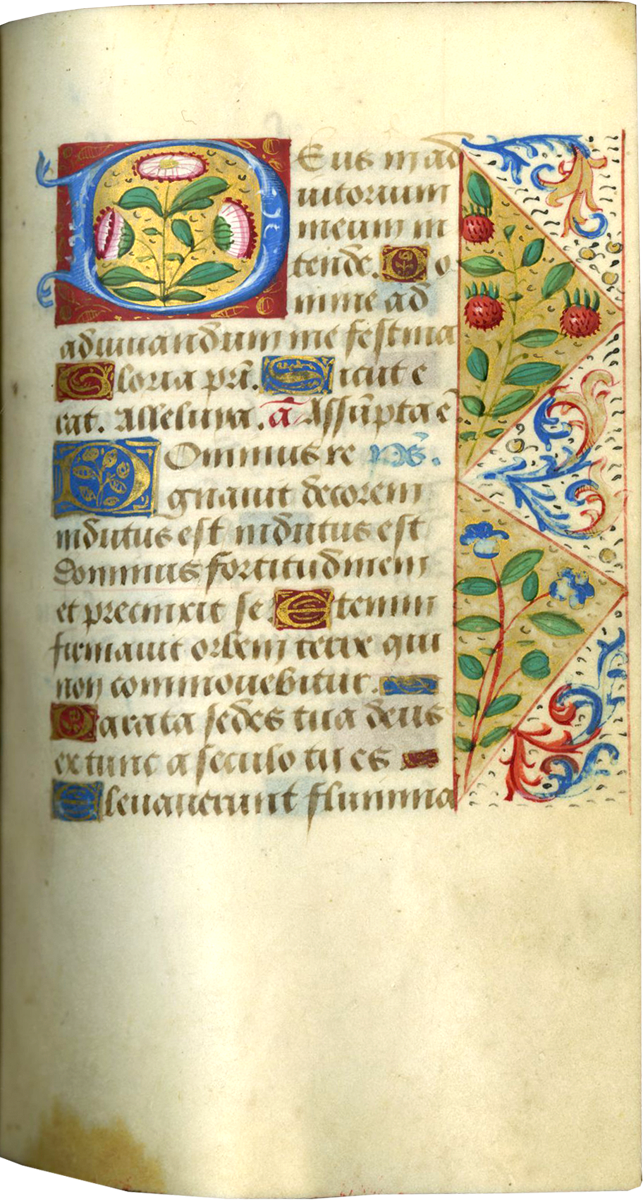 Deus in ad
iutorium
meum in
tende. Do
mine ad
adiuuandum me festina
Gloria pri. Sicut e
rat. Alleluya. a Assumpta e
Dominus re ps.
gnauit decorem
indutus est indutus est
dominus fortitudinem
et precinxit se Etenim
firmauit orbem terre qui
non commouebitur.
Parata sedes tua deus
ex tunc a seculo tu es
Eleuauerunt flumina